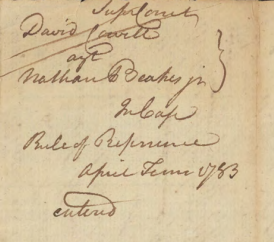 Sup Court
David
agt
Nathan Beakes jr
In Case
Rule of Reference
April Term 1783
entered